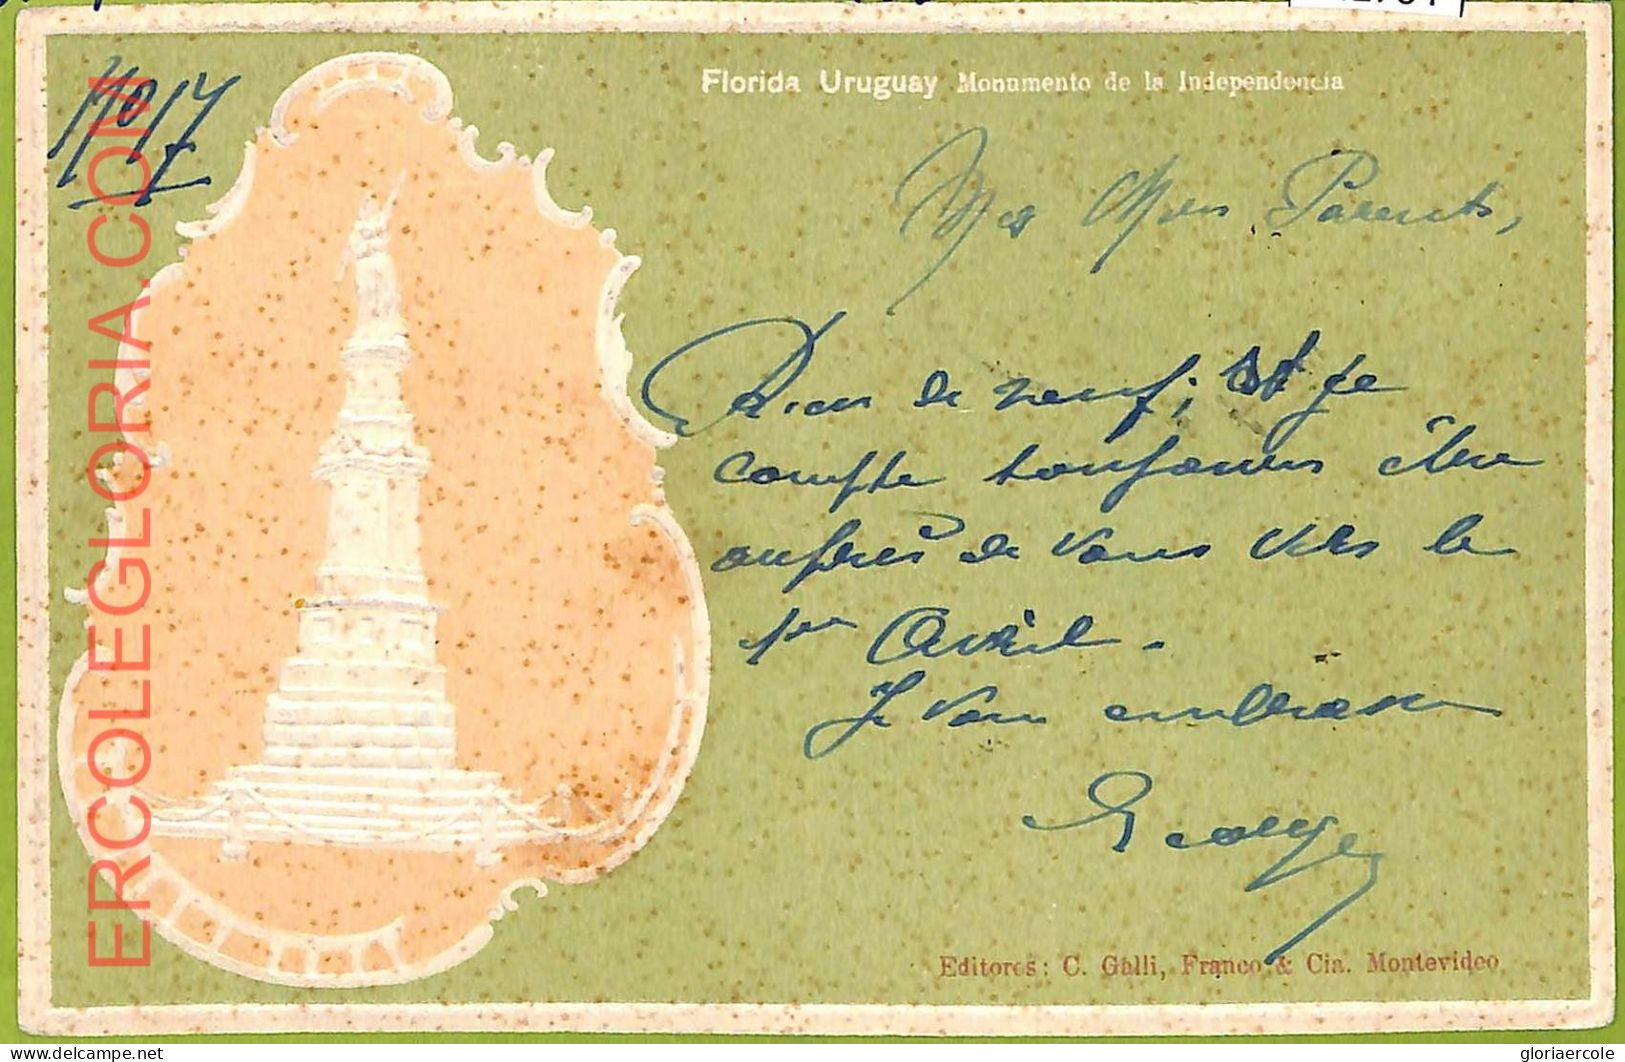 Florida Uruguay Monumento de la Independencia
Mes Chers Parents,
Rien de neuf; et je
compte toujours être
auprès de vous vers le
1er Avril.
Je vous embrasse
George
Editores: C. Galli, Franco & Cia. Montevideo
ERCOLEGLORIA.COM
delcampe.net
gloriaercole